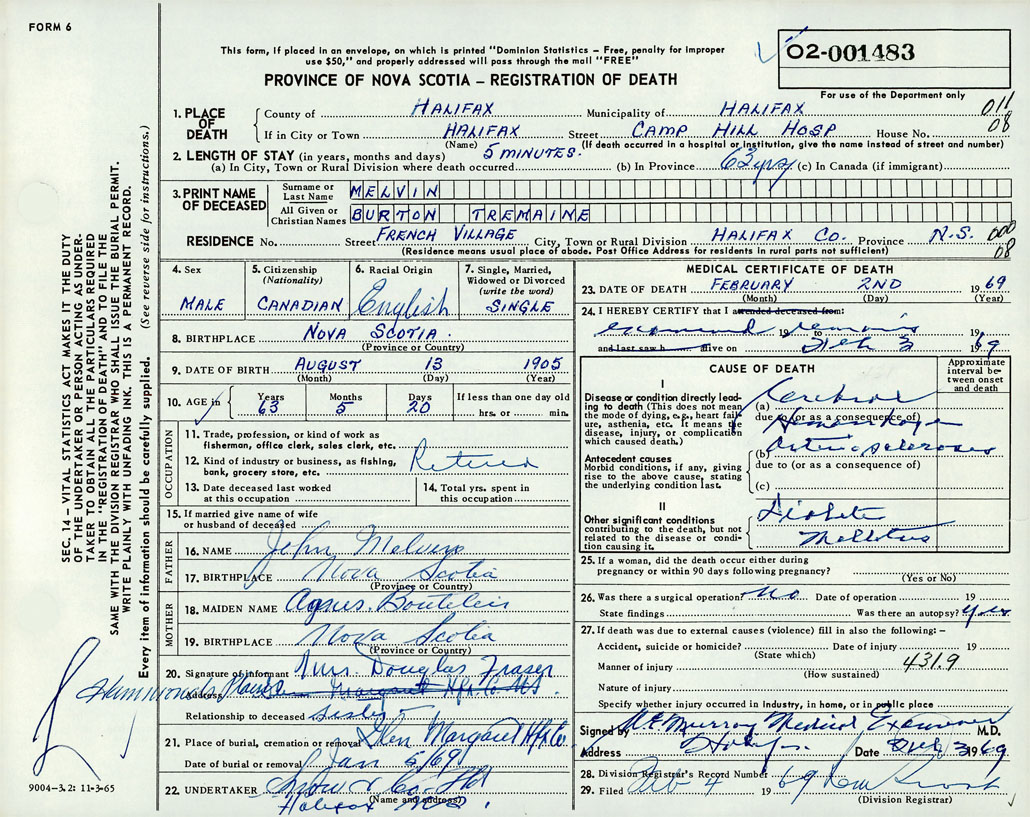 FORM 6
This form, if placed in an envelope, on which is printed "Dominion Statistics – Free, penalty for improper
use $50," and properly addressed will pass through the mail "FREE"
O2-001483
PROVINCE OF NOVA SCOTIA – REGISTRATION OF DEATH
For use of the Department only
1. PLACE OF DEATH
County of HALIFAX Municipality of HALIFAX 011
If in City or Town HALIFAX Street CAMP HILL HOSP House No. 08
(Name) (If death occurred in a hospital or institution, give the name instead of street and number)
2. LENGTH OF STAY (in years, months and days) 5 MINUTES.
(a) In City, Town or Rural Division where death occurred (b) In Province 63 yrs (c) In Canada (if immigrant)
3. PRINT NAME OF DECEASED
Surname or Last Name MELVIN
All Given or Christian Names BURTON TREMAINE
RESIDENCE No. Street FRENCH VILLAGE City, Town or Rural Division HALIFAX Co. Province N.S. 000
(Residence means usual place of abode. Post Office Address for residents in rural parts not sufficient) 08
4. Sex
MALE
5. Citizenship
(Nationality)
CANADIAN
6. Racial Origin
English
7. Single, Married,
Widowed or Divorced
(write the word)
SINGLE
8. BIRTHPLACE NOVA SCOTIA.
(Province or Country)
9. DATE OF BIRTH AUGUST 13 1905
(Month) (Day) (Year)
10. AGE in
Years Months Days If less than one day old
63 5 20 hrs. or min.
OCCUPATION
11. Trade, profession, or kind of work as
fisherman, office clerk, sales clerk, etc.
12. Kind of industry or business, as fishing,
bank, grocery store, etc.
Retired
13. Date deceased last worked
at this occupation
14. Total yrs. spent in
this occupation
15. If married give name of wife
or husband of deceased
FATHER
16. NAME John Melvin
17. BIRTHPLACE Nova Scotia
(Province or Country)
MOTHER
18. MAIDEN NAME Agnes. Boutilier
19. BIRTHPLACE Nova Scotia
(Province or Country)
20. Signature of informant Mrs. Douglas Fraser
Address Hammonds Plains Glen Margaret Hfx Co NS.
Relationship to deceased Sister
21. Place of burial, cremation or removal Glen Margaret Hfx Co.
Date of burial or removal Jan 5/69
22. UNDERTAKER Snow & Co Ltd
(Name and address)
Halifax N.S.
MEDICAL CERTIFICATE OF DEATH
23. DATE OF DEATH FEBRUARY 2ND 1969
(Month) (Day) (Year)
24. I HEREBY CERTIFY that I attended deceased from:
examined 19 to remains 19
and last saw h alive on Feb 3 1969
CAUSE OF DEATH
Approximate
interval be-
tween onset
and death
I
Disease or condition directly lead-
ing to death (This does not mean
the mode of dying, e.g., heart fail-
ure, asthenia, etc. It means the
disease, injury, or complication
which caused death.)
(a) Cerebral
due to (or as a consequence of)
Hemorrhage
Antecedent causes
Morbid conditions, if any, giving
rise to the above cause, stating
the underlying condition last.
(b) Arteriosclerosis
due to (or as a consequence of)
(c)
II
Other significant conditions
contributing to the death, but not
related to the disease or condi-
tion causing it.
Diabetes
Mellitus
25. If a woman, did the death occur either during
pregnancy or within 90 days following pregnancy?
(Yes or No)
26. Was there a surgical operation? No Date of operation 19
State findings Was there an autopsy? Yes
27. If death was due to external causes (violence) fill in also the following: –
Accident, suicide or homicide? Date of injury 19
(State which)
Manner of injury 431.9
(How sustained)
Nature of injury
Specify whether injury occurred in industry, in home, or in public place
Signed by Murray Medical Examiner M.D.
Address Date Feb 3 1969
28. Division Registrar's Record Number
29. Filed Feb 4 1969
(Division Registrar)
SEC. 14 – VITAL STATISTICS ACT MAKES IT THE DUTY
OF THE UNDERTAKER OR PERSON ACTING AS UNDER-
TAKER TO OBTAIN ALL THE PARTICULARS REQUIRED
IN THE "REGISTRATION OF DEATH" AND TO FILE THE
SAME WITH THE DIVISION REGISTRAR WHO SHALL ISSUE THE BURIAL PERMIT.
WRITE PLAINLY WITH UNFADING INK. THIS IS A PERMANENT RECORD.
Every item of information should be carefully supplied. (See reverse side for instructions.)
9004-3.2: 11-3-65